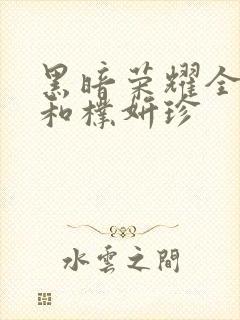 黑暗荣耀全
和樸妍珍
水雲之間